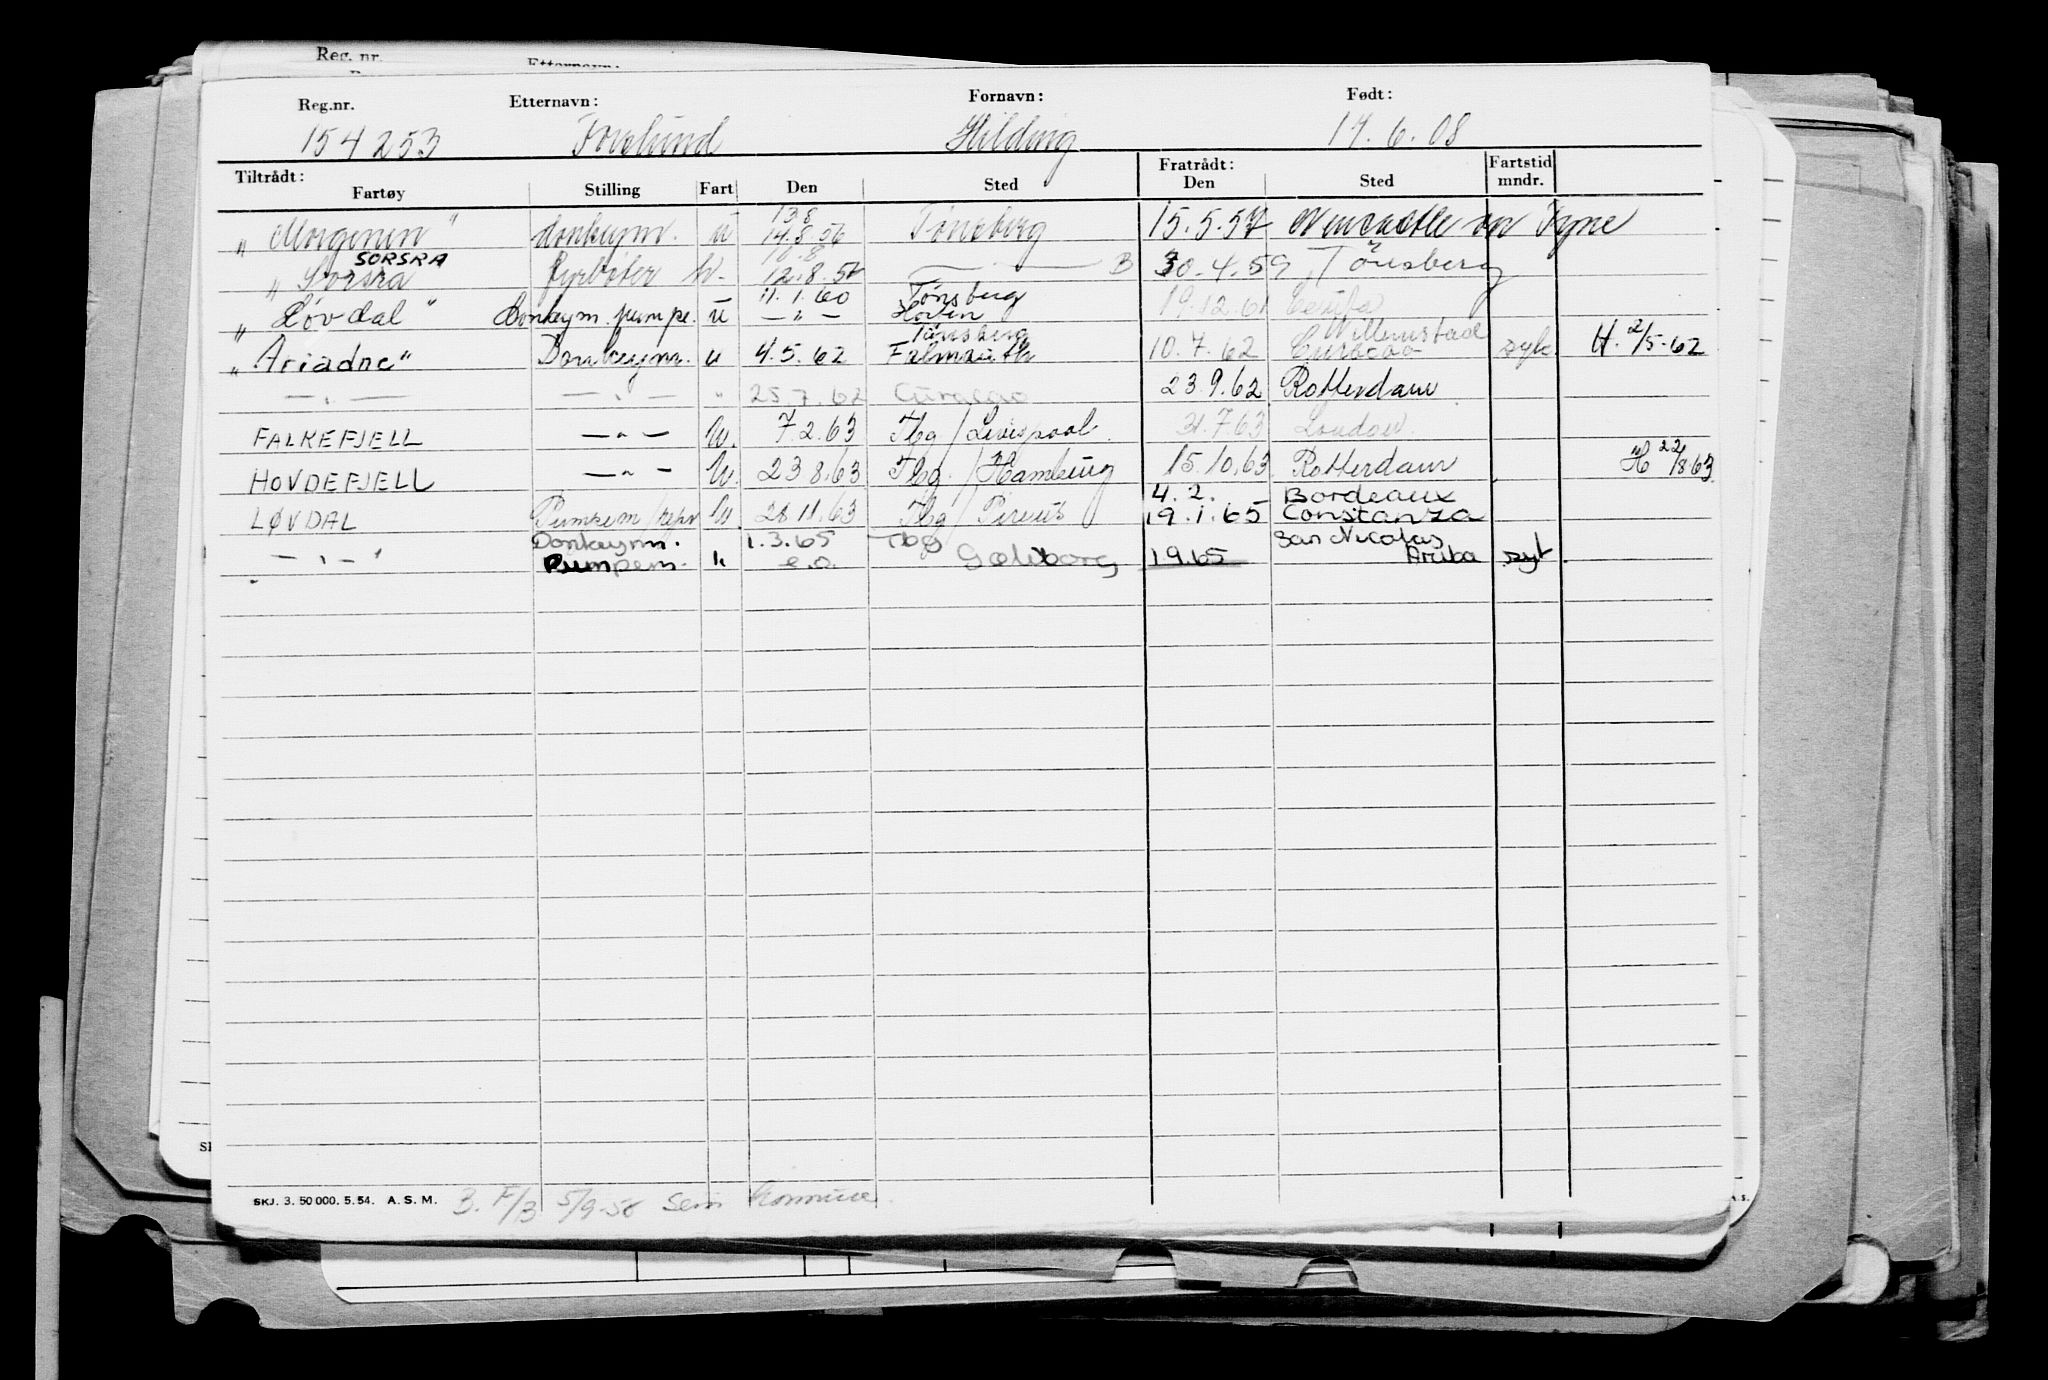 Reg. nr. Etternavn:
Reg.nr. Etternavn: Fornavn: Født:
154253 Forslund Hilding 17.6.08
Tiltrådt: Fratrådt: Fartstid
Fartøy Stilling Fart Den Sted Den Sted mndr.
13.8
"Morgenen" donkeym. u 14.8.56 Tønsberg 15.5.57 Newcastle on Tyne
SORSRA 10.8
"Sorsra fyrbøter 12.8.57 — B 30.4.59 Tönsberg
11.1.60 Tønsberg
"Løvdal" Donkeym. pumpe. u — " — Hoven 19.12.61 Ceuta
Tønsberg Willemstad
"Ariadne" Donkeym. u 4.5.62 Falmouth 10.7.62 Curacao syk H. 2/5-62
— " — — " — " 25.7.62 Curacao 23.9.62 Rotterdam
FALKEFJELL — " — U. 7.2.63 Tbg/Liverpool. 31.7.63 London.
HOVDEFJELL — " — U. 23.8.63 Tbg/Hamburg 15.10.63 Rotterdam H 22/8.63
4.2. — Bordeaux
LØVDAL Pumpem/repr U. 28.11.63 Tbg/Pireus 19.1.65 Constanza
Donkeym. 1.3.65 Tbg San Nicolas
— " — " Pumpem. " e.o. Gøteborg 1.9.65 Aruba syk
SKJ. 3. 50 000. 5. 54. A. S. M. B. F/3 5/9-58 Sem kommune.